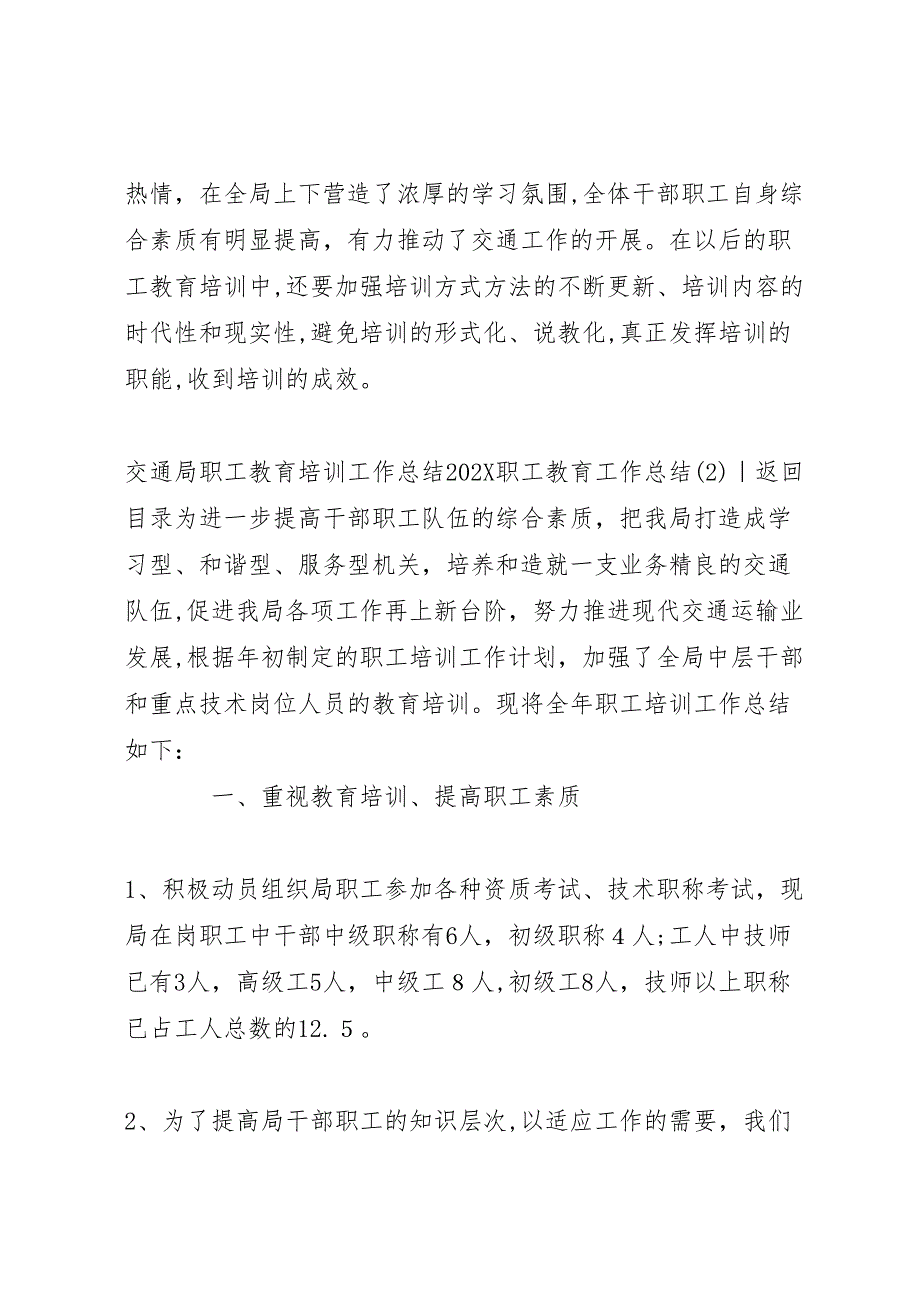 热情，在全局上下营造了浓厚的学习氛围,全体干部职工自身综
合素质有明显提高，有力推动了交通工作的开展。在以后的职
工教育培训中,还要加强培训方式方法的不断更新、培训内容的
时代性和现实性,避免培训的形式化、说教化,真正发挥培训的
职能,收到培训的成效。
交通局职工教育培训工作总结202X职工教育工作总结(2)｜返回
目录为进一步提高干部职工队伍的综合素质，把我局打造成学
习型、和谐型、服务型机关，培养和造就一支业务精良的交通
队伍,促进我局各项工作再上新台阶，努力推进现代交通运输业
发展,根据年初制定的职工培训工作计划，加强了全局中层干部
和重点技术岗位人员的教育培训。现将全年职工培训工作总结
如下：
一、重视教育培训、提高职工素质
1、积极动员组织局职工参加各种资质考试、技术职称考试，现
局在岗职工中干部中级职称有6人，初级职称４人;工人中技师
已有3人，高级工5人，中级工８人,初级工8人，技师以上职称
已占工人总数的12.５。
2、为了提高局干部职工的知识层次,以适应工作的需要，我们